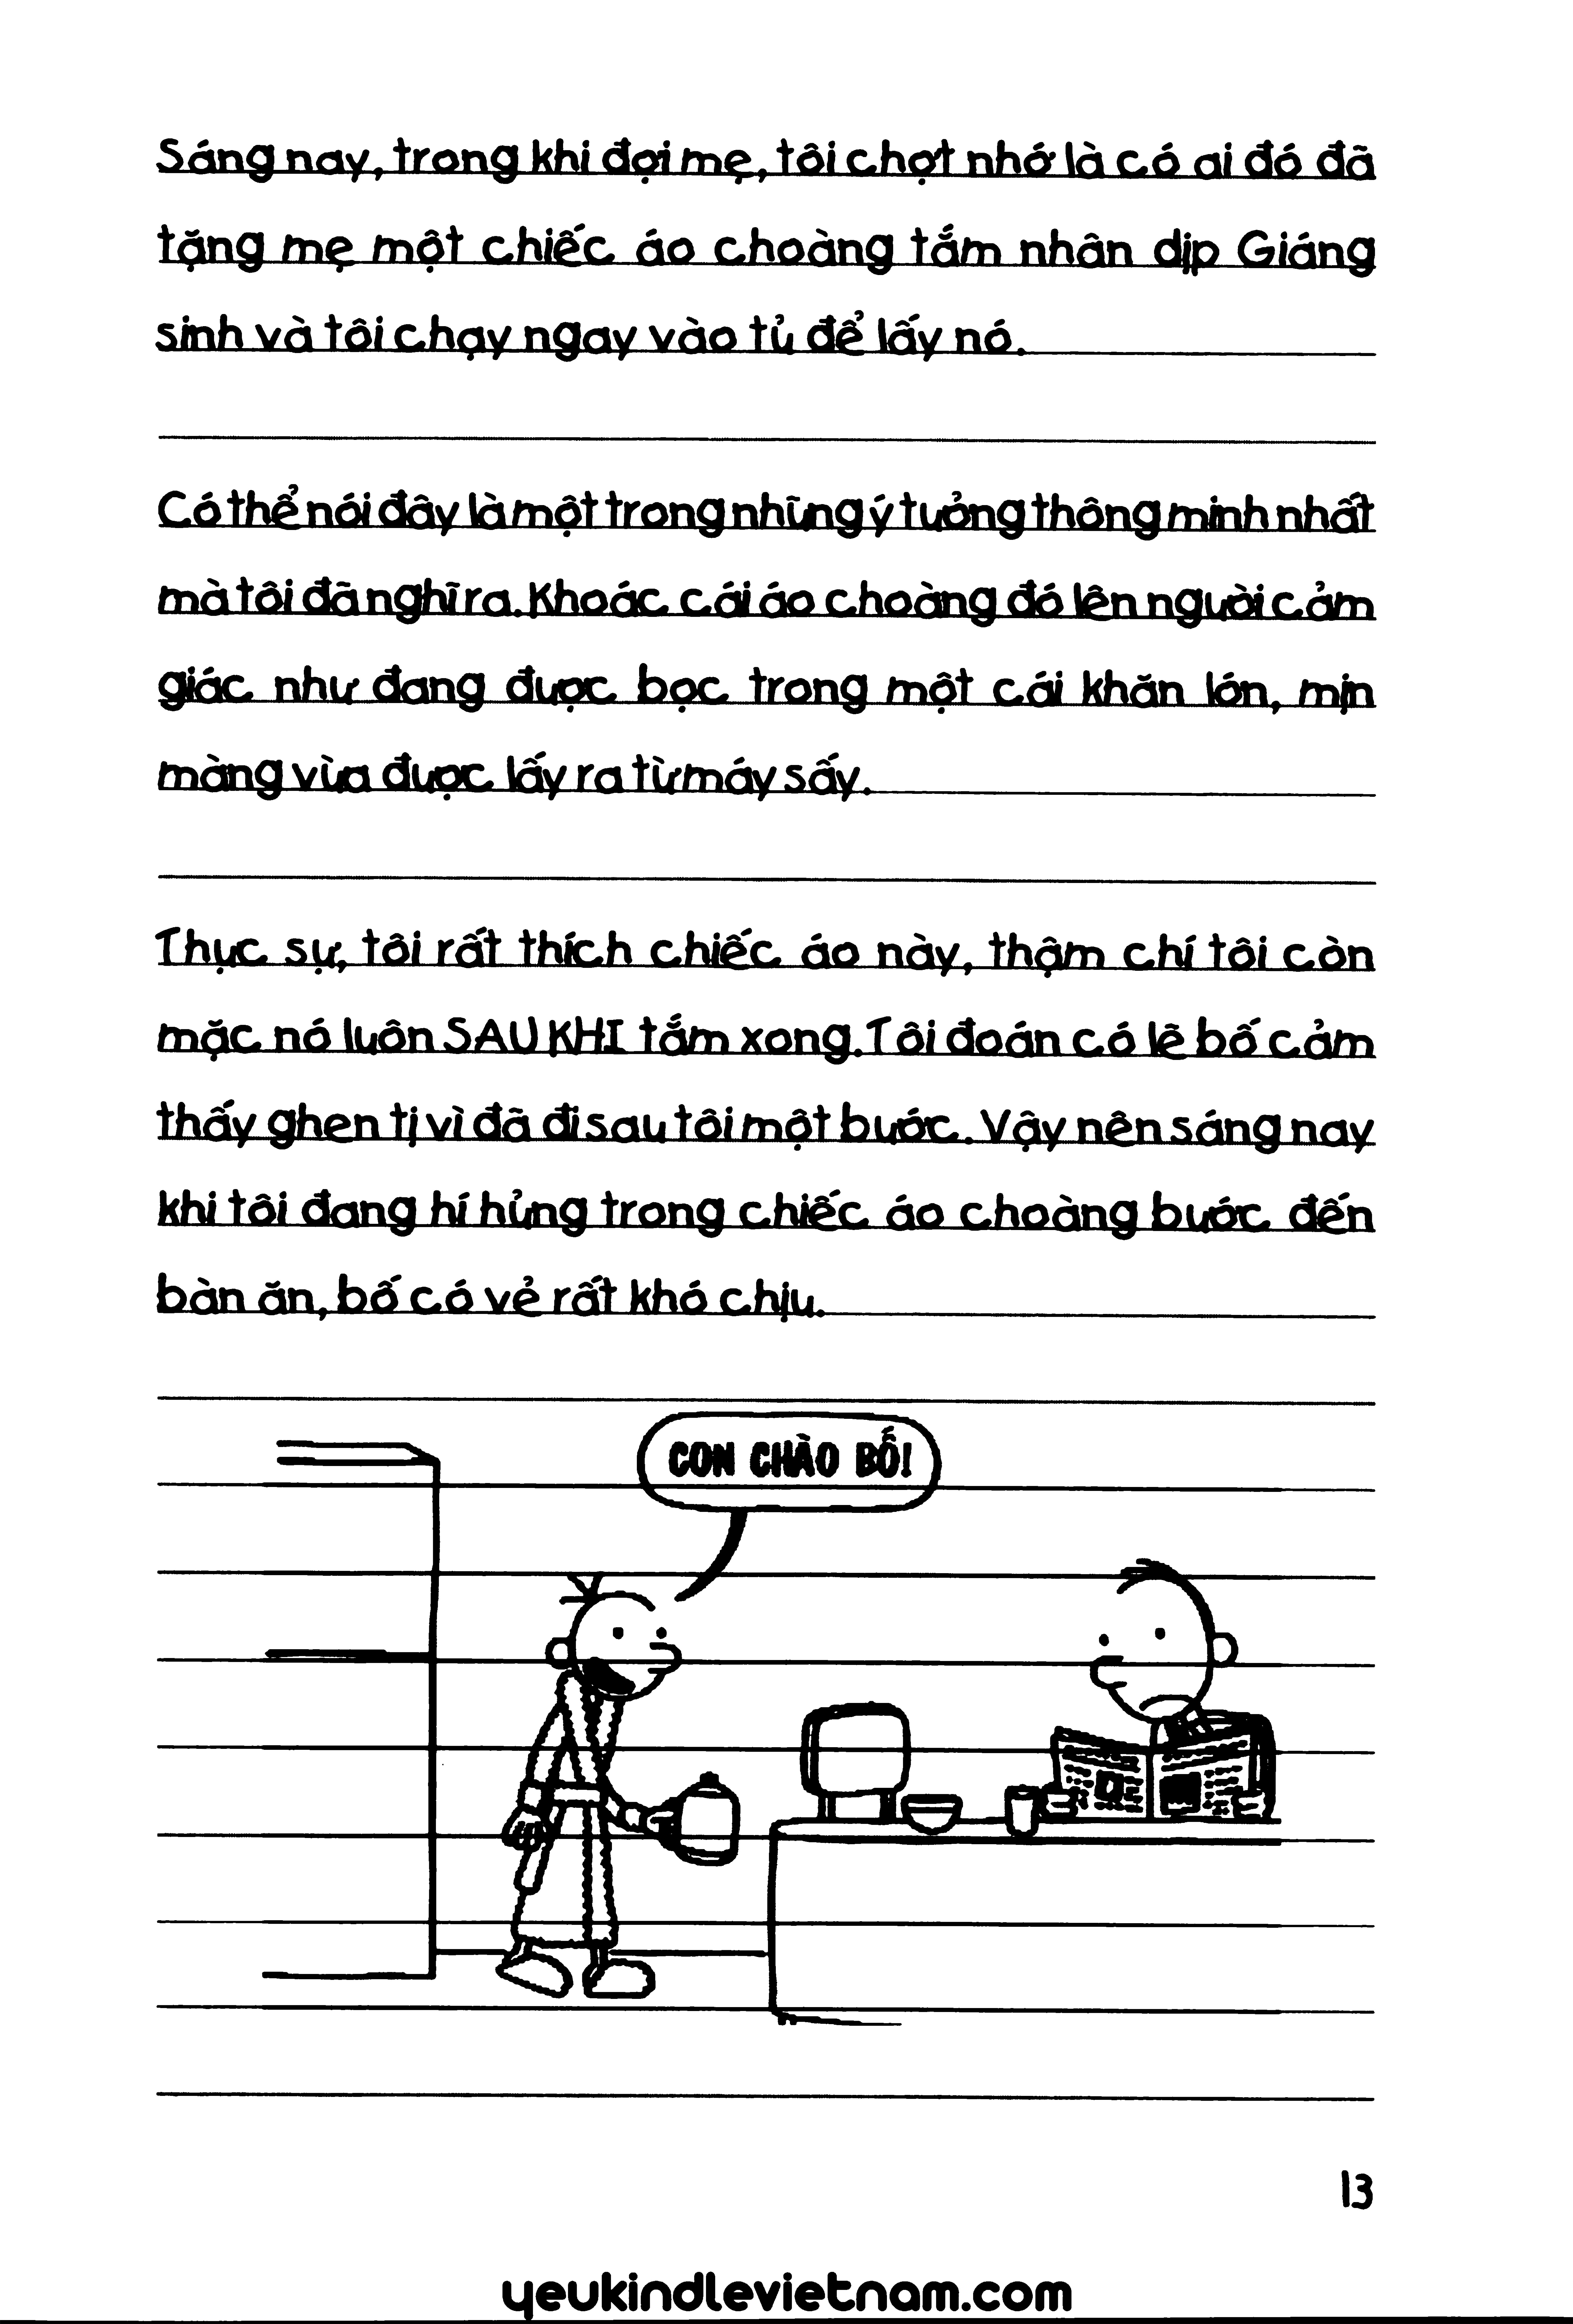 Sáng nay, trong khi đợi mẹ, tôi chợt nhớ là có ai đó đã
tặng mẹ một chiếc áo choàng tắm nhân dịp Giáng
sinh và tôi chạy ngay vào tủ để lấy nó.
Có thể nói đây là một trong những ý tưởng thông minh nhất
mà tôi đã nghĩ ra. Khoác cái áo choàng đó lên người cảm
giác như đang được bọc trong một cái khăn lớn, mịn
màng vừa được lấy ra từ máy sấy.
Thực sự, tôi rất thích chiếc áo này, thậm chí tôi còn
mặc nó luôn SAU KHI tắm xong. Tôi đoán có lẽ bố cảm
thấy ghen tị vì đã đi sau tôi một bước. Vậy nên sáng nay
khi tôi đang hí hửng trong chiếc áo choàng bước đến
bàn ăn, bố có vẻ rất khó chịu.
CON CHÀO BỐ!
13
yeukindlevietnam.com